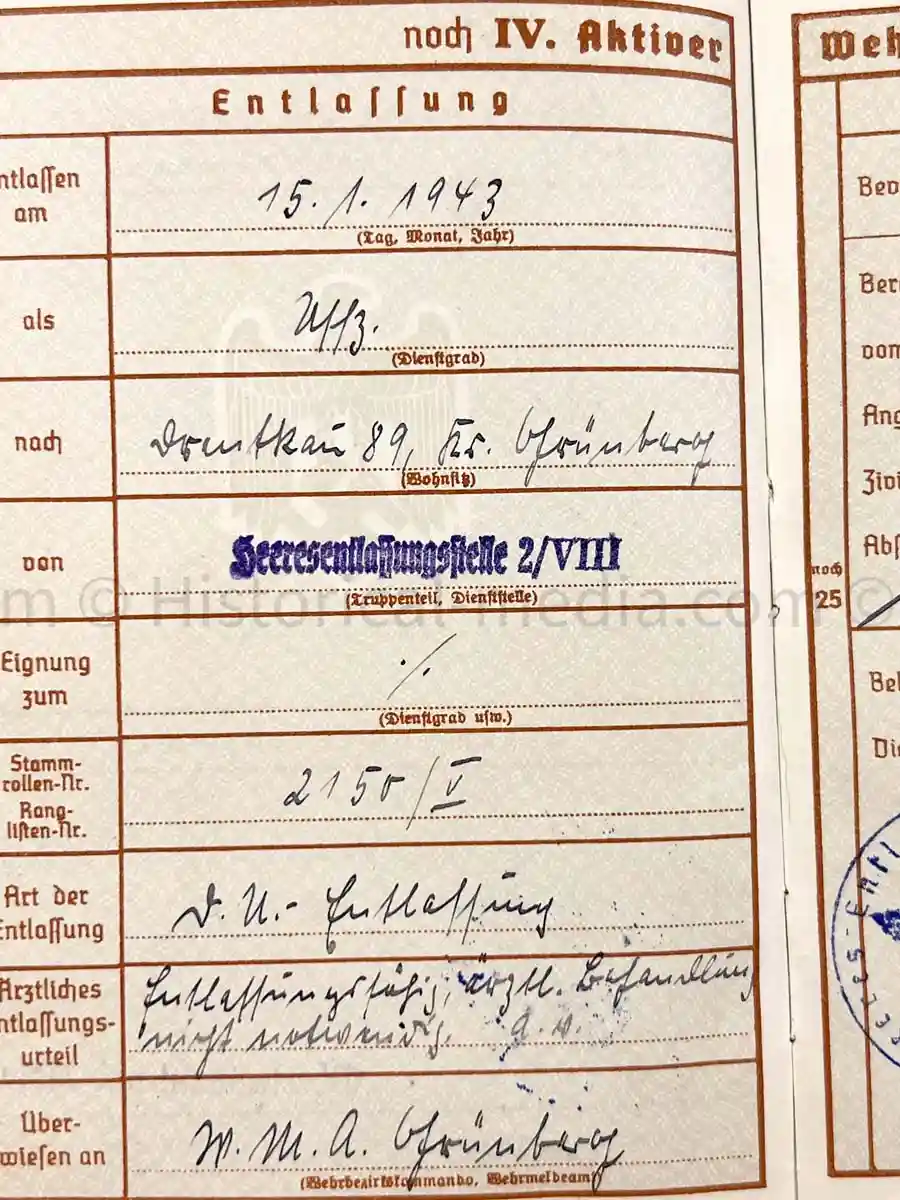 noch IV. Aktiver
Entlassung
ntlassen
am
15. 1. 1943
(Tag, Monat, Jahr)
als
Uffz.
(Dienstgrad)
nach
Drentkau 89, Kr. Grünberg
(Wohnsitz)
von
Heeresentlassungsstelle 2/VIII
(Truppenteil, Dienststelle)
m © Historical-media.com ©
Eignung
zum
./.
(Dienstgrad usw.)
Stamm-
rollen-Nr.
Rang-
listen-Nr.
2150/V
Art der
Entlassung
D. U.- Entlassung
Ärztliches
ntlassungs-
urteil
Entlassungsfähig, ärztl. Behandlung
nicht notwendig.
Über-
wiesen an
W. M. A. Grünberg
(Wehrbezirkskommando, Wehrmeldeamt)
Weh
Bev
Ber
vom
Ang
Zivi
Abs
noch
25
Bel
Die
Heeres-Entl